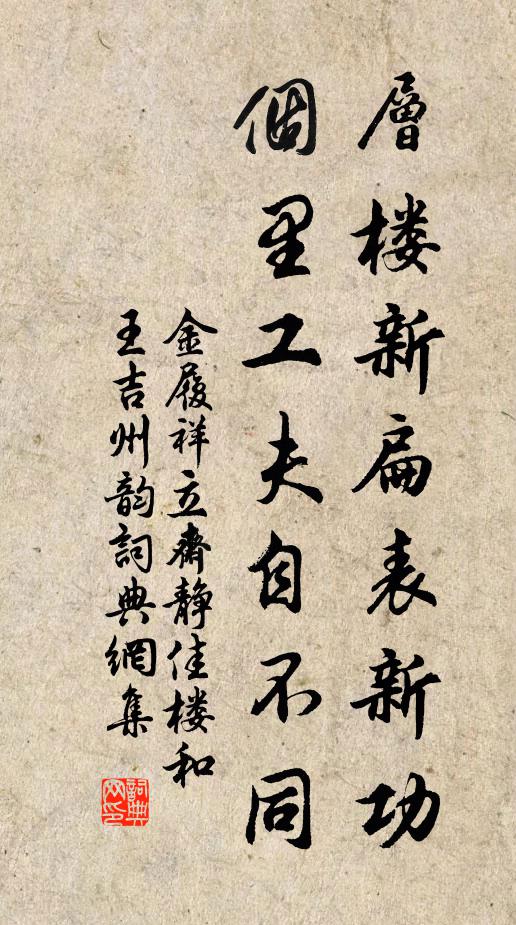 層楼新扁表新功
個里工夫自不同
金履祥立齋静佳楼和
王吉州韵詞典網集
詞典网印